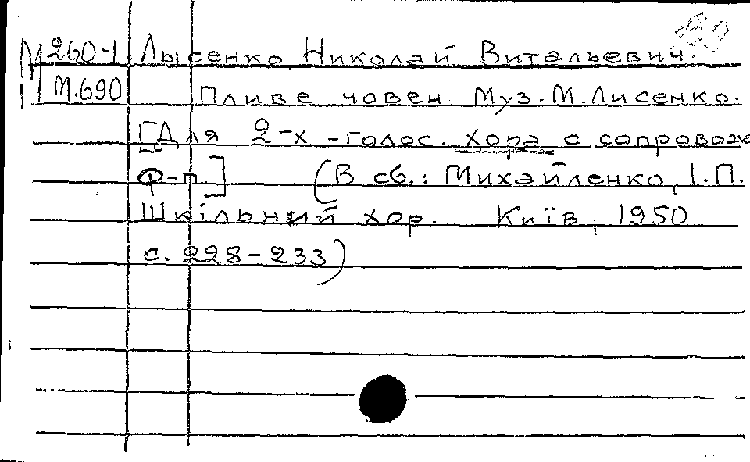 М260-1 Лысенко, Николай Витальевич.
М.690 Пливе човен. Муз. М. Лисенко.
[Для 2-х -голос. хора с сопровож
Ф-п.] (В сб.: Михайленко, І.П.
Шкільний хор. Київ, 1950
с. 228-233)